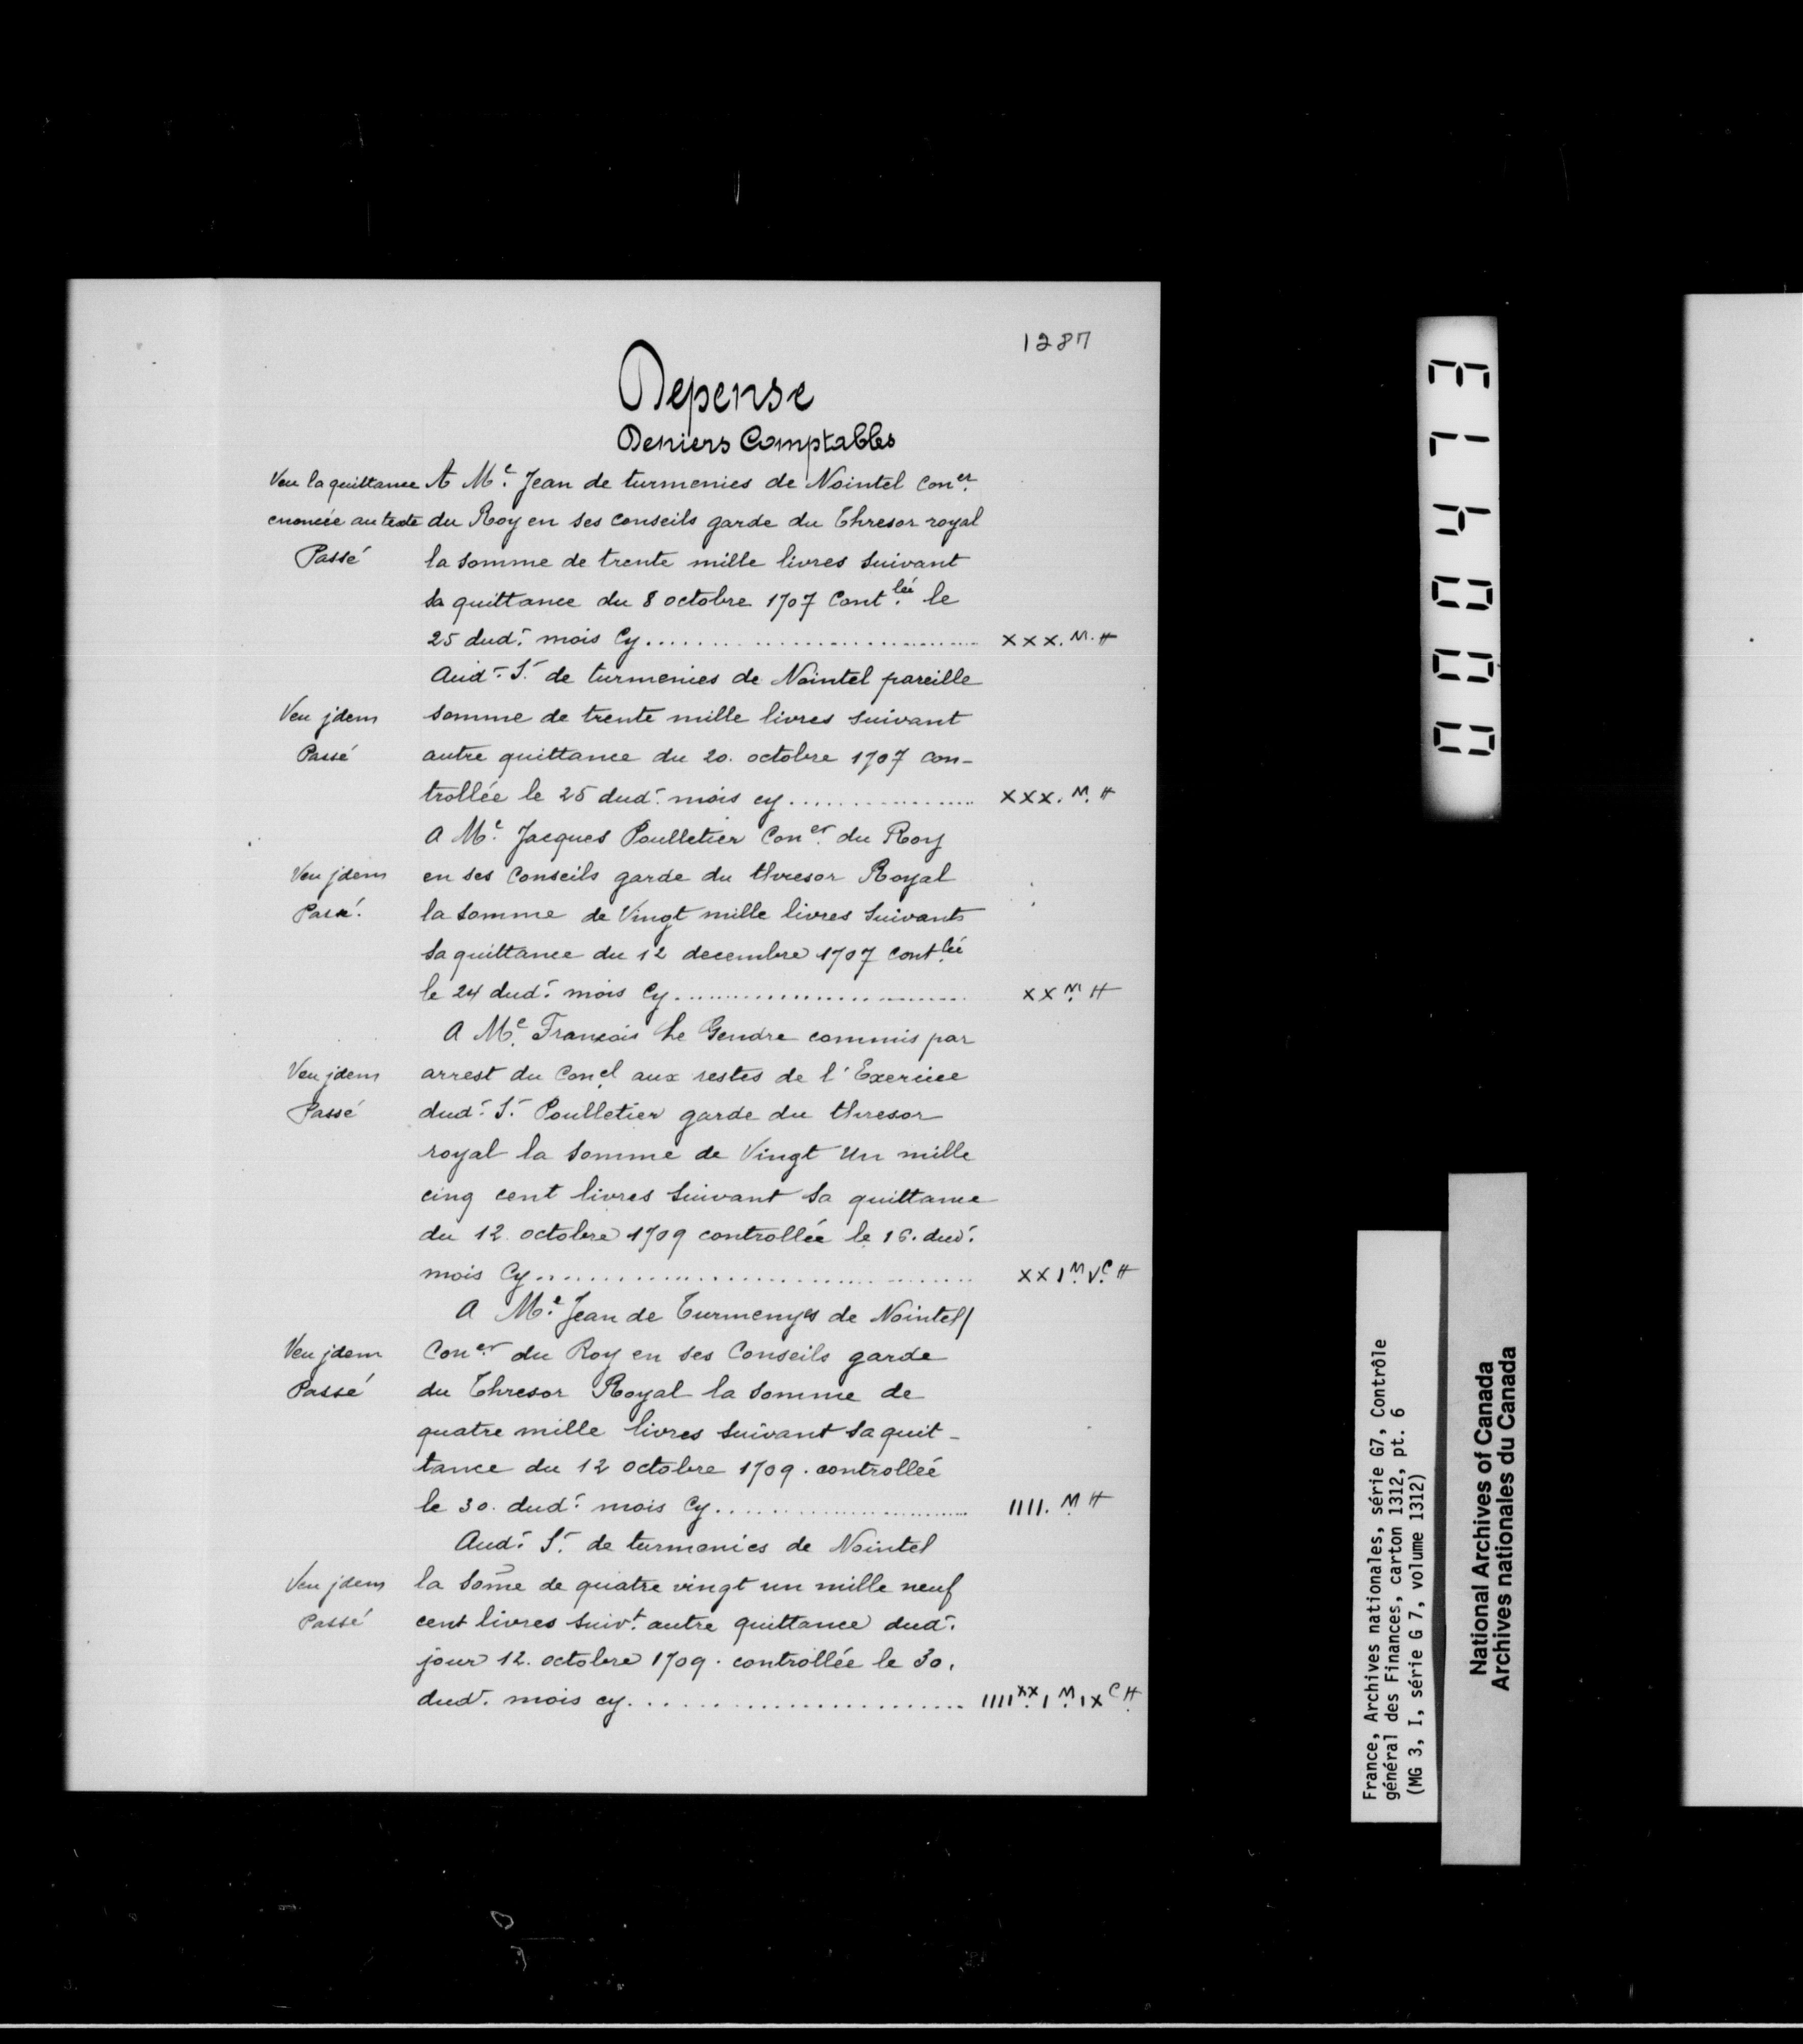 1287
Depense
Deniers Comptables
Veu la quittance A Mᵉ. Jean de turmenies de Nointel Conᵉʳ.
enoncée au texte du Roy en ses conseils garde du Thresor royal
Passé la somme de trente mille livres suivant
sa quittance du 8 octobre 1707 Contˡᵉᵉ le
25 dud. mois Cy.............................. XXX. M. ₶
Aud. S. de turmenies de Nointel pareille
Veu jdem somme de trente mille livres suivant
Passé autre quittance du 20. octobre 1707 con-
trollée le 25 dud. mois cy.................. XXX. M. ₶
A Mᵉ. Jacques Poulletier Conᵉʳ. du Roy
Veu jdem en ses Conseils garde du thresor Royal
Passé. la somme de Vingt mille livres suivant
sa quittance du 12 decembre 1707 contˡᵉᵉ
le 24 dud. mois Cy........................... XX M. ₶
A Mᵉ. François Le Gendre commis par
Veu jdem arrest du Conel aux restes de l'Exercice
Passé dud. S. Poulletier garde du thresor
royal la somme de Vingt Un mille
cinq cent livres suivant sa quittance
du 12 octobre 1709 controllée le 16. dud.
mois Cy........................................ XXI M. V C. ₶
A Mᵉ. Jean de Turmenyes de Nointel/
Veu jdem Conᵉʳ. du Roy en ses Conseils garde
Passé du Thresor Royal la somme de
quatre mille livres suivant sa quit-
tance du 12 octobre 1709. controlleé
le 30. dud. mois Cy......................... IIII. M. ₶
Aud. S. de turmenies de Nointel
Veu jdem la som̄e de quatre vingt un mille neuf
Passé cent livres suivᵗ. autre quittance dud.
jour 12. octobre 1709. controllée le 30.
dud. mois cy........................ IIII ˣˣ. I M. IX C. ₶
000413
France, Archives nationales, série G7, Contrôle
général des Finances, carton 1312, pt. 6
(MG 3, I, série G 7, volume 1312)
National Archives of Canada
Archives nationales du Canada